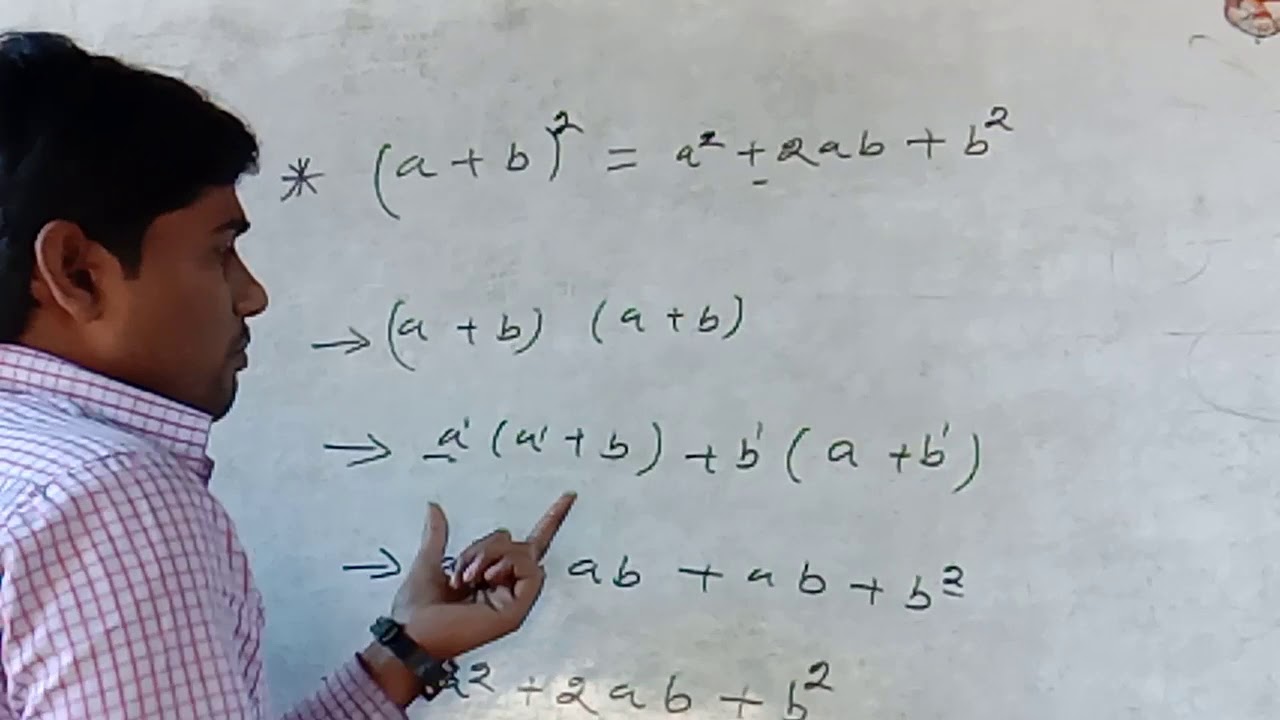 * (a + b)² = a² + 2ab + b²
→ (a + b) (a + b)
→ a¹ (a¹ + b) + b¹ (a + b¹)
→ ab + ab + b²
a² + 2ab + b²